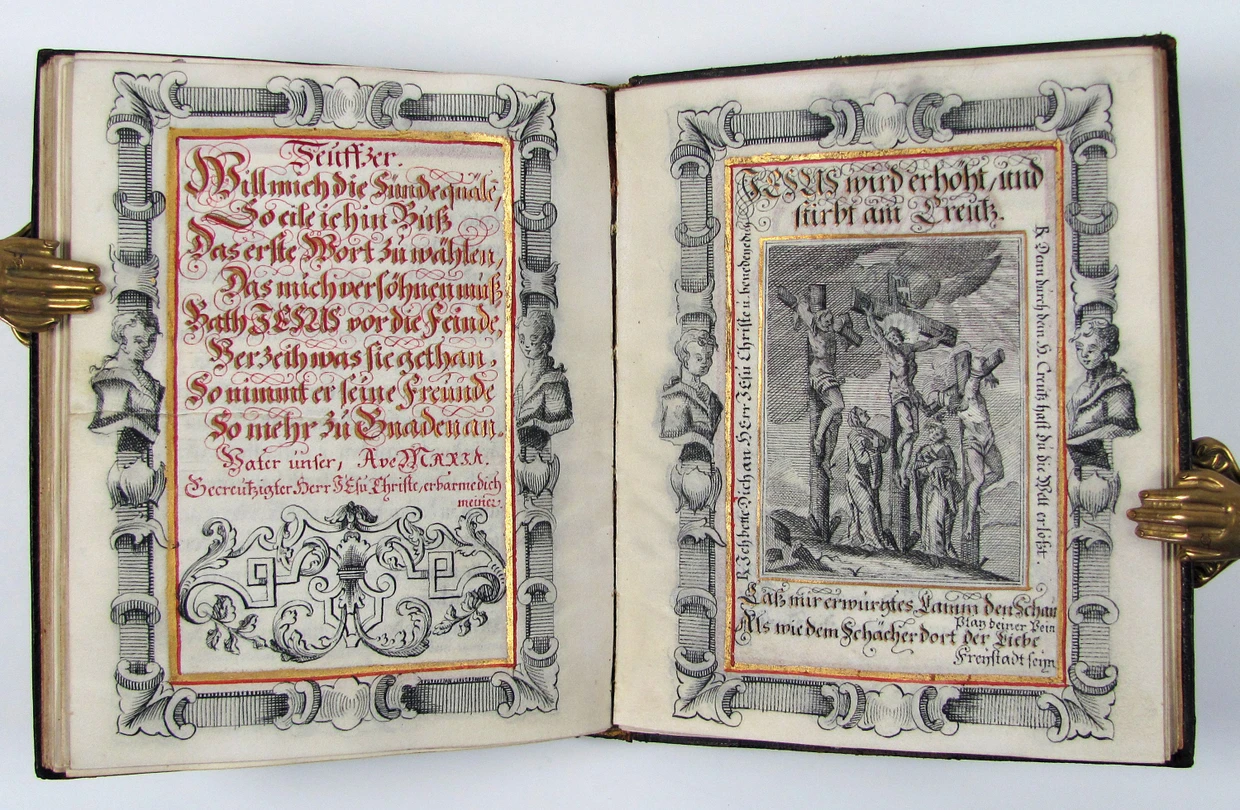 Seuffzer.
Will mich die Sünde quäle̅,
So eile ich in Buß
Das erste Wort zu wählen,
Das mich versöhnen muß
Bath JESUS vor die Feinde,
Verzeih was sie gethan,
So nimmt er seine Freunde
So mehr zü Gnaden an.
Vater unser, Ave MARIA.
Gecreutzigter Herr JEsu Christe, erbarme dich
meiner.
JESUS wird erhöht, und
stirbt am Creutz.
R Ich bette Dich an HErr JEsu Christe u. benedeye dich
R. Denn durch dein H. Creutz hast du die Welt erlößt.
Laß mir erwürgtes Lamm den Schau
Platz deiner Pein
Als wie dem Schächer dort der Liebe
Freÿstadt seÿn